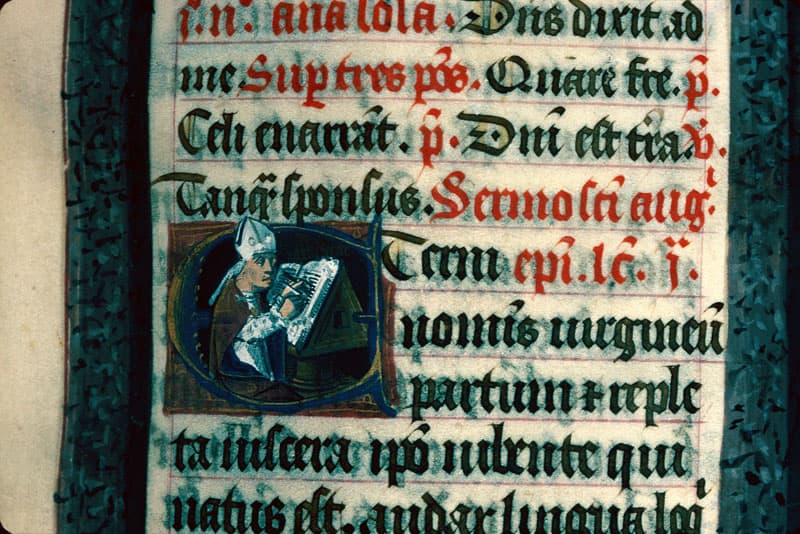 j. nͦ. aña sola. Dñs dixit ad
me Sup tres p̄os. Quare fre. p̄.
Celi enarrāt. p̄. Dñi est tr̄a. v̄.
Tanq̄ sponsus. Sermo sc̄i aug9.
Eterni ep̄i. lc̄. j.
nomīs uirgineū
partum ⁊ reple
ta uiscera ip̄o iubente qui
natus est. audax lingua loq